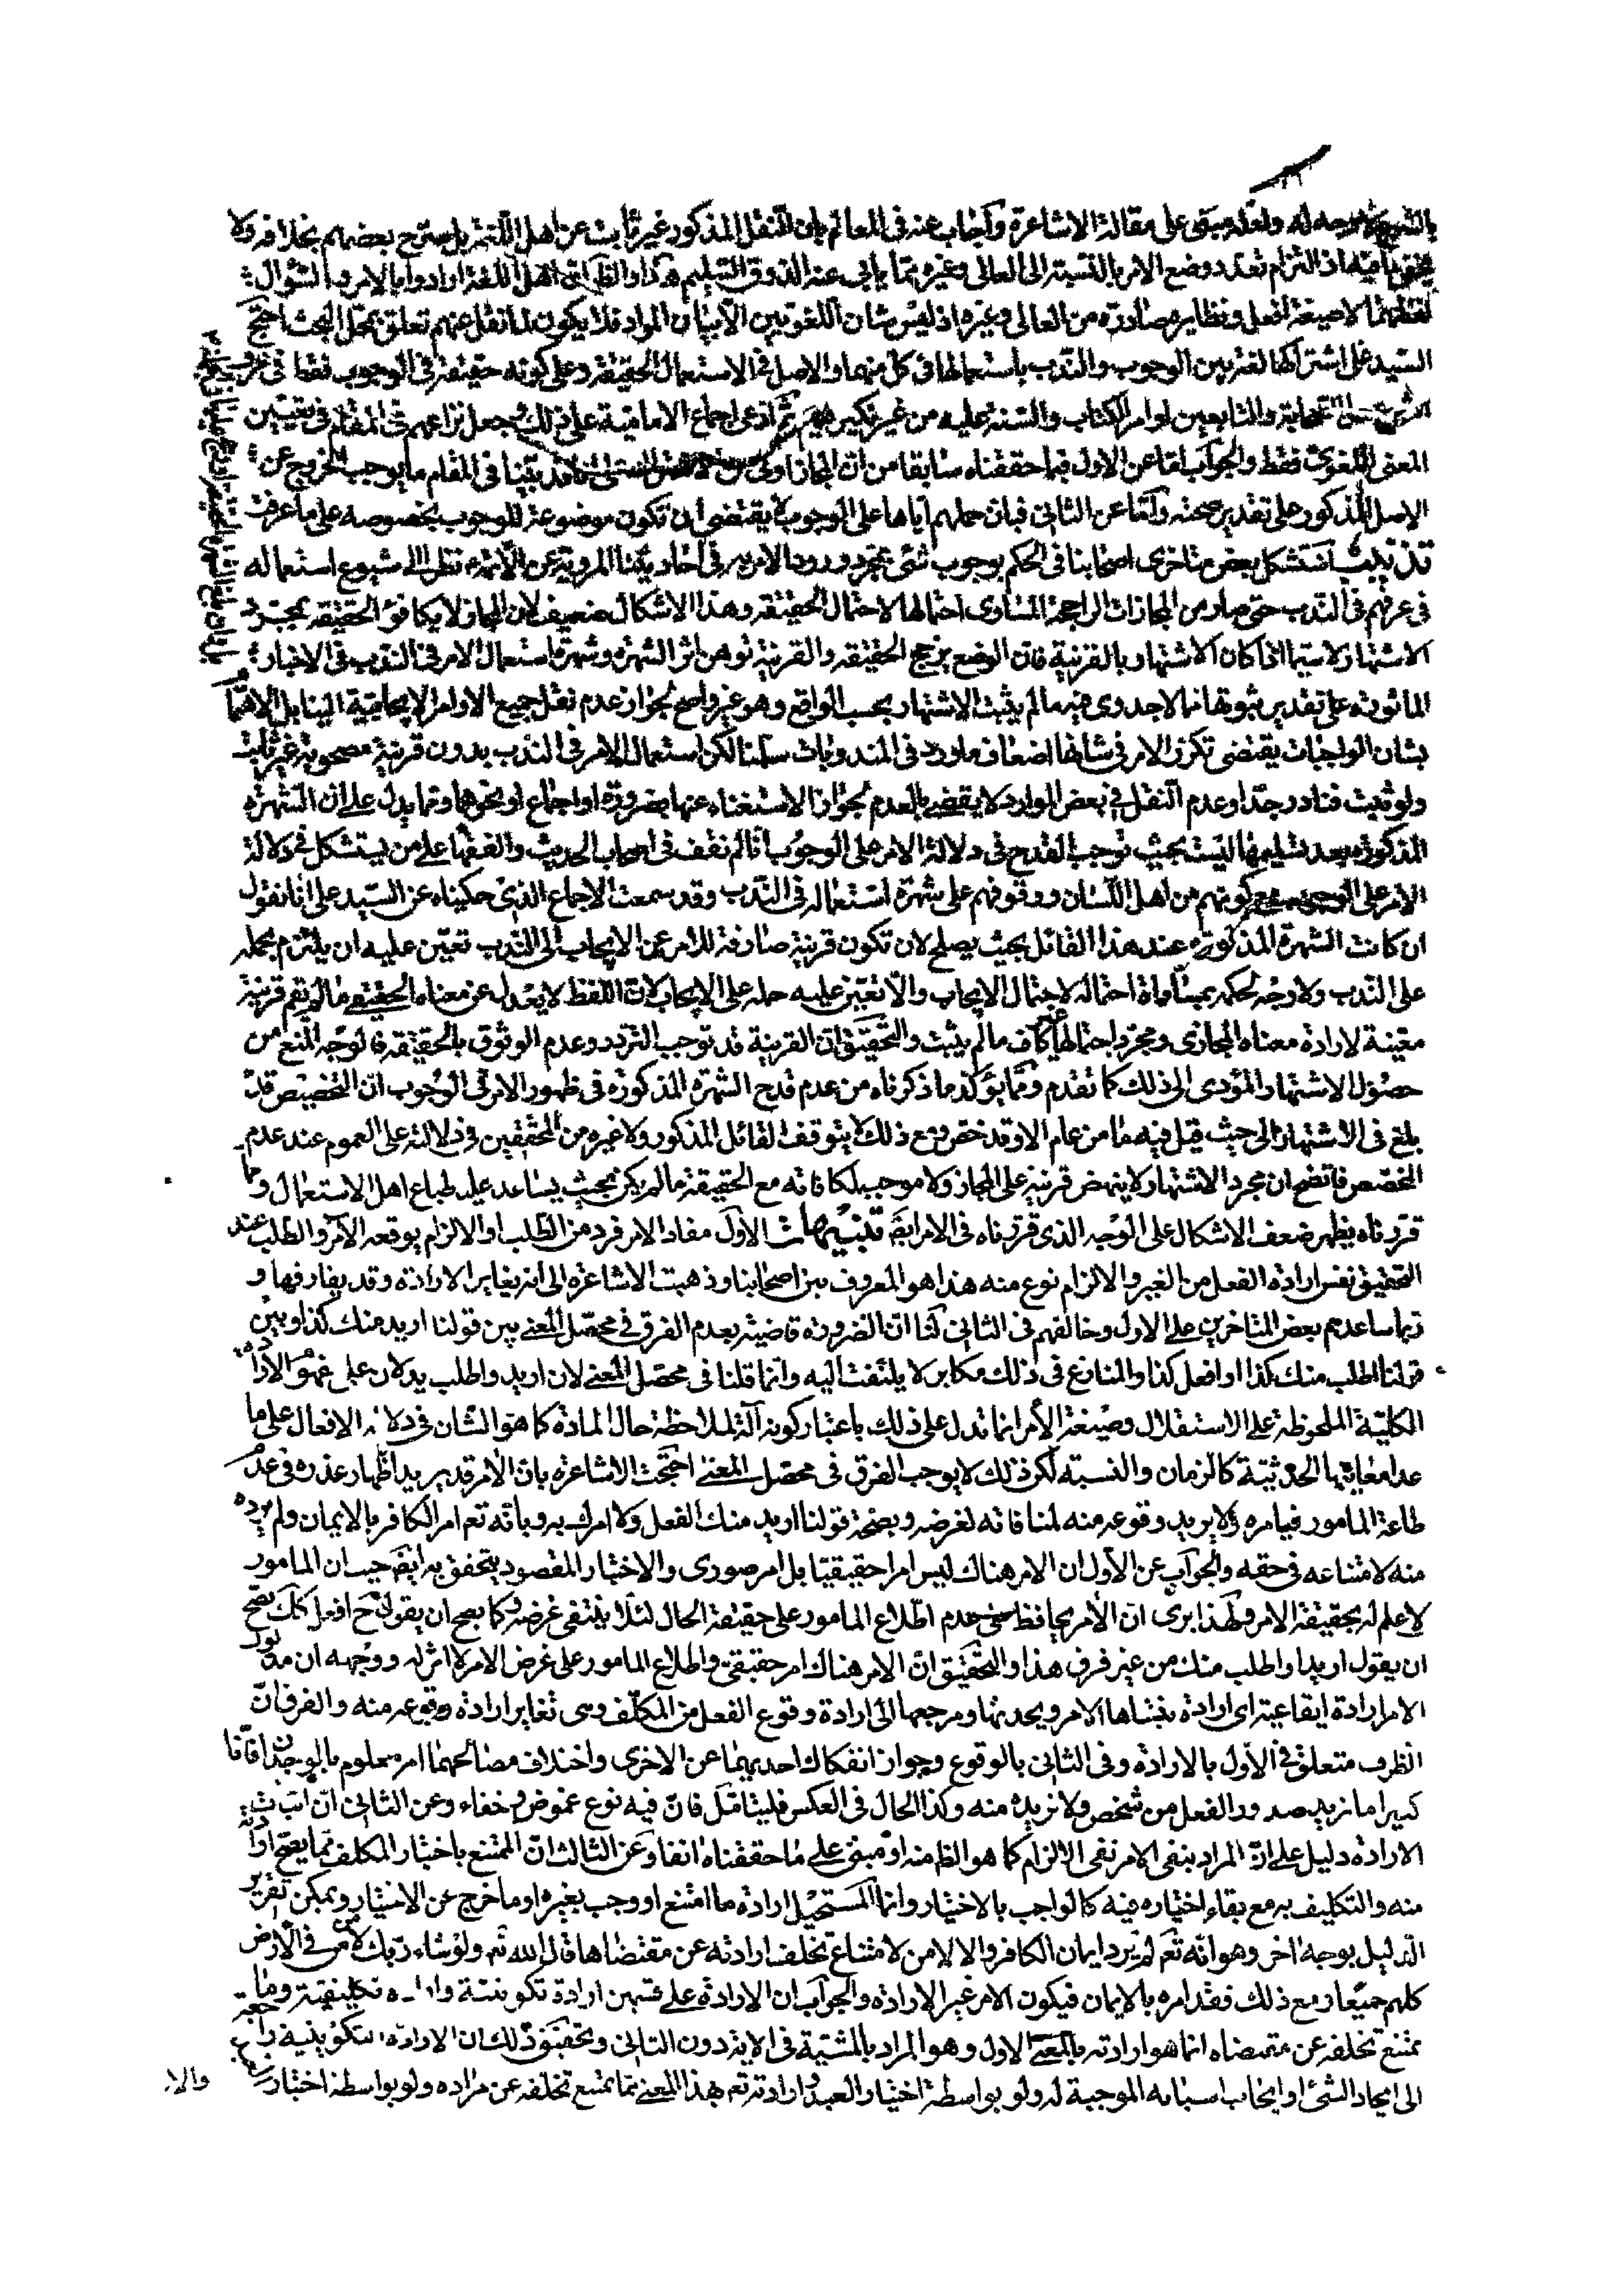 لا وجه له ولعله مبنى على مقالة الاشاعرة واجاب عنه فى المعالم بان النقل المذكور غير ثابت عن اهل اللغة بل صرح بعضهم بخلافه ولا
يخفى ما فيه اذ التزام تعدد وضع الامر بالنسبة الى العالى وغيره مما يابى عنه الذوق السليم هذا والظ ان اهل اللغة ارادوا بالامر والسؤال
لفظهما لا صيغة افعل ونظايره صادرة من العالى وغيره اذ ليس شان اللغويين الا بيان المواد فلا يكون لما نقل عنهم تعلق بمحل البحث احتج
السيد على اشتراكها لغة بين الوجوب والندب باستعمالها فى كل منهما والاصل فى الاستعمال الحقيقة وعلى كونه حقيقة فى الوجوب فقط فى عرف
الصحابة والتابعين اوامر الكتاب والسنة عليه من غير نكير ثم ادعى اجماع الامامية على ذلك وجعل نزاعهم فى المقام فى تعيين
المعنى اللغوى فقط والجواب اما عن الاول فبما حققناه سابقا من ان المجاز اولى من الاشتراك بينا فى المقام ما يوجب الخروج عن
الاصل المذكور على تقدير صحته واما عن الثانى فبان حملهم اياها على الوجوب لا يقتضى ان تكون موضوعة للوجوب بخصوصه على ما عرفت
تذنيب استشكل بعض متاخرى اصحابنا فى الحكم بوجوب شئ بمجرد ورود الامر به فى احاديثنا المروية عن الائمه نظرا الى شيوع استعماله
فى عرفهم فى الندب حتى صار من المجازات الراجحة المساوى احتمالها لاحتمال الحقيقه وهذا الاشكال ضعيف لان المجاز لا يكافؤ الحقيقه بمجرد
الاشتهار لا سيما اذا كان الاشتهار بالقرينة فان الوضع يرجح الحقيقه والقرينة توهن اثر الشهرة وشهرة استعمال الامر فى الندب فى الاخبار
الماثورة على تقدير ثبوتها مما لا جدوى فيه ما لم يثبت الاشتهار بحسب الواقع وهو غير واضح لجواز عدم نقل جميع الاوامر الايجابية الينا بل الاهتمام
بشان الواجبات يقتضى تكرر الامر فى شانها اضعاف ما ورد فى المندوبات سلمنا لكن استعمال الامر فى الندب بدون قرينة مصحوبة غير ثابت
ولو ثبت فنادر جدا وعدم النقل فى بعض الموارد لا يقضى بالعدم لجواز الاستغناء عنها بضرورة او اجماع او نحوهما ومما يدل على ان الشهرة
المذكورة بعد تسليمها ليست بحيث توجب القدح فى دلالة الامر على الوجوب انا لم نقف فى اصحاب الحديث والفقهاء على من يستشكل فى دلالة
الامر على الوجوب مع كونهم من اهل اللسان ووقوفهم على شهرة استعماله فى الندب وقد سمعت الاجماع الذى حكيناه عن السيد على انا نقول
ان كانت الشهرة المذكورة عند هذا القائل بحيث يصلح لان تكون قرينة صارفة للامر عن الايجاب الى الندب تعين عليه ان يلتزم بحمله
على الندب ولا وجه لحكمه بمساواة احتماله لاحتمال الايجاب والا تعين عليه حمله على الايجاب لان اللفظ لا يعدل عن معناه الحقيقى ما لم يقم قرينة
معينة لارادة معناه المجازى ومجرد احتمالها غير كاف ما لم يثبت والتحقيق ان القرينة قد توجب التردد وعدم الوثوق بالحقيقه فالوجه المنع من
حصول الاشتهار المؤدى الى ذلك كما تقدم ومما يؤكد ما ذكرناه من عدم قدح الشهرة المذكورة فى ظهور الامر فى الوجوب ان التخصيص قد
بلغ فى الاشتهار الى حيث قيل فيه ما من عام الا وقد خص ومع ذلك لا يتوقف القائل المذكور ولا غيره من المحققين فى دلالته على العموم عند عدم
المخصص فاتضح ان مجرد الاشتهار لا ينهض قرينة على المجاز ولا موجب لمكافاته مع الحقيقة ما لم يكن بحيث يساعد عليه طباع اهل الاستعمال وبما
قررناه يظهر ضعف الاشكال على الوجه الذى قررناه فى الامر ايضا تنبيهات الاول مفاد الامر فرد من الطلب او الالزام يوقعه الآمر والطلب عند
التحقيق نفس ارادة الفعل من الغير والالزام نوع منه هذا هو المعروف بين اصحابنا وذهبت الاشاعرة الى انه يغاير الارادة وقد يفارقها و
ربما ساعدهم بعض المتاخرين على الاول وخالفهم فى الثانى لنا ان الضرورة قاضية بعدم الفرق فى محصل المعنى بين قولنا اريد منك كذا وبين
قولنا اطلب منك كذا او افعل كذا والمنازع فى ذلك مكابر لا يلتفت اليه وانما قلنا فى محصل المعنى لان اريد واطلب يدلان على مفهوم الارادة
الكلية الملحوظة على الاستقلال وصيغة الأمر انما تدل على ذلك باعتبار كونه آلة لملاحظة حال المادة كما هو الشان فى دلالة الافعال على ما
عدا معانيها الحدثية كالزمان والنسبه لكن ذلك لا يوجب الفرق فى محصل المعنى احتجت الاشاعرة بان الأمر قد يريد اظهار عذره فى عدم
طاعة المامور فيامره ولا يريد وقوعه منه لمنافاته لغرضه وبصحة قولنا اريد منك الفعل ولا امرك به وبانه تعالى امر الكافر بالايمان ولم يرده
منه لامتناعه فى حقه والجواب عن الاول ان الامر هناك ليس امرا حقيقيا بل امر صورى والاختبار المقصود يتحقق به ايضا حيث ان المامور
لا علم له بحقيقة الامر ولهذا يرى ان الأمر يحافظ على عدم اطلاع المامور على حقيقة الحال لئلا ينتفى غرضه وكما يصح ان يقول ح افعل كك يصح
ان يقول اريد او اطلب منك من غير فرق هذا والتحقيق ان الامر هناك امر حقيقى واطلاع المامور على غرض الامر لا اثر له ووجهه ان مدلول
الامر ارادة ايقاعية اى ارادة ينشاها الامر ويحدثها ومرجعها الى ارادة وقوع الفعل من المكلف وهى تغاير ارادة وقوعه منه والفرق ان
الظرف متعلق فى الأول بالارادة وفى الثانى بالوقوع وجواز انفكاك احديهما عن الاخرى واختلاف مصالحهما امر معلوم بالوجدان فانا
كثيرا ما نريد صدور الفعل من شخص ولا نريده منه وكذا الحال فى العكس فليتامل فان فيه نوع غموض وخفاء وعن الثانى ان اثبات
الارادة دليل على ان المراد بنفى الامر نفى الالزام كما هو الظ منه او مبنى على ما حققناه انفا وعن الثالث ان الممتنع باختيار المكلف مما يصح ارادته
منه والتكليف به مع بقاء اختياره فيه كالواجب بالاختيار وانما المستحيل ارادة ما امتنع او وجب بغيره او ما خرج عن الاختيار ويمكن تقرير
الدليل بوجه اخر وهو انه تعالى لم يرد ايمان الكافر والا لامن لامتناع تخلف ارادته عن مقتضاها قال الله تعالى ولو شاء ربك لآمن من فى الأرض
كلهم جميعا ومع ذلك فقد امره بالايمان فيكون الامر غير الارادة والجواب ان الارادة على قسمين ارادة تكوينية وارادة تكليفية وما
يمتنع تخلفه عن مقتضاه انما هو ارادته بالمعنى الاول وهو المراد بالمشية فى الاية دون الثانى وتحقيق ذلك ان الارادة التكوينية راجعة
الى ايجاد الشئ او ايجاب اسبابه الموجبة له ولو بواسطة اختيار العبد وارادته تعالى بهذا المعنى مما يمتنع تخلفه عن مراده ولو بواسطة اختيار
والا